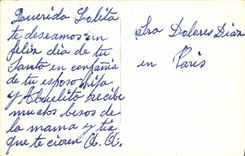 Querida Lolita
te deseamos un
feliz dia de tu
Santo en compañia
de tu esposo hija
y Abuelito recibe
muchos besos de
la mama y tia
que te
Sra Dolores Diaz
en Paris